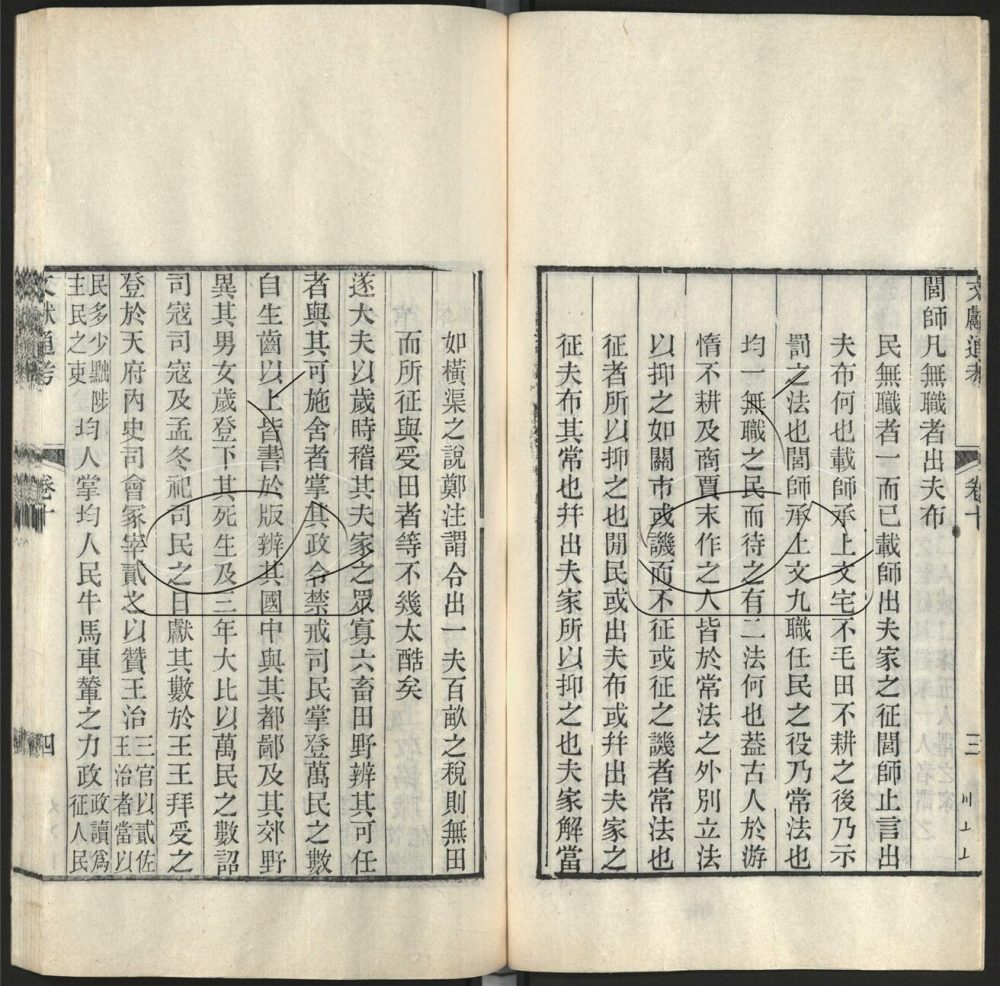 文獻通考 卷十 三
閭師凡無職者出夫布
民無職者一而已載師出夫家之征閭師止言出
夫布何也載師承上文宅不毛田不耕之後乃示
罰之法也閭師承上文九職任民之役乃常法也
均一無職之民而待之有二法何也葢古人於游
惰不耕及商賈末作之人皆於常法之外別立法
以抑之如關市或譏而不征或征之譏者常法也
征者所以抑之也閒民或出夫布或幷出夫家之
征夫布其常也幷出夫家所以抑之也夫家解當
如橫渠之說鄭注謂令出一夫百畝之稅則無田
而所征與受田者等不幾太酷矣
遂大夫以歲時稽其夫家之眾寡六畜田野辨其可任
者與其可施舍者掌其政令禁戒司民掌登萬民之數
自生齒以上皆書於版辨其國中與其都鄙及其郊野
異其男女歲登下其死生及三年大比以萬民之數詔
司寇司寇及孟冬祀司民之日獻其數於王王拜受之
登於天府內史司會冢宰貳之以贊王治三官以貳佐王治者當以
民多少黜陟主民之吏均人掌均人民牛馬車輦之力政政讀爲征人民
文獻通考 卷十 四